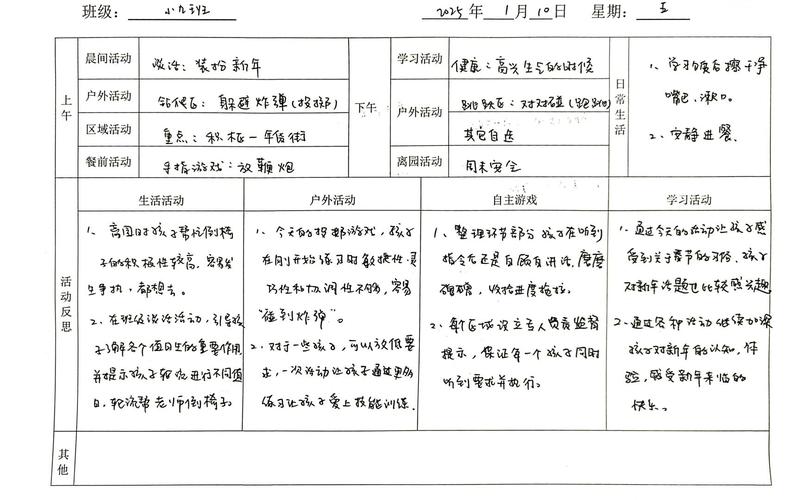 班级： 小九班 2025 年 1 月 10 日 星期： 五
上午
晨间活动 谈话：装扮新年
户外活动 躲避炸弹（投掷）
区域活动 重点：积木一年货街
餐前活动 手指游戏：放鞭炮
下午
学习活动 健康：高兴生气的时候
户外活动 跑跳区：对对碰（跑跳）
其它自选
离园活动 周末安全
日常生活
1、学习饭后擦干净
嘴巴、漱口。
2、安静进餐
活动反思
生活活动
1、离园时孩子帮忙倒椅
子的积极性较高，容易发
生争执，都想去。
2、在班级谈话活动，引导孩
子了解各个值日生的重要作用
并提示孩子轮流进行不同值
日，轮流帮老师倒椅子。
户外活动
1、今天的投掷游戏，孩子
在刚开始练习时敏捷性、灵
巧性和协调性不够，容易
“碰到炸弹”。
2、对于一些孩子，可以放低要
求，一次活动让孩子通过更多
练习让孩子爱上技能训练.
自主游戏
1、整理环节部分孩子在听到
指令后还是自顾自讲话，磨磨
蹭蹭，收拾进度拖拉。
2、每个区域设立专人负责监督
提示，保证每一个孩子同时
听到要求并执行。
学习活动
1、通过今天的活动让孩子感
受到关于春节的习俗、孩子
对新年话题也比较感兴趣
2、通过各种活动继续加深
孩子对新年的认知，体
验，感受新年来临的
快乐。
其他